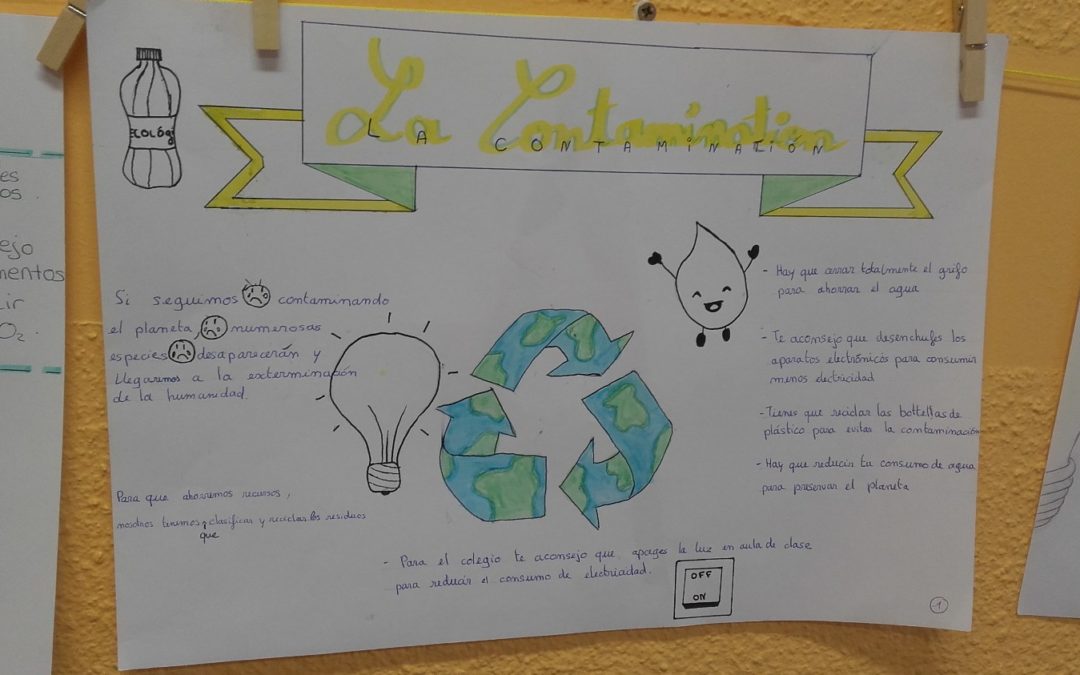 La Contamination
LA CONTAMINACIÓN
ECOLÓGI
Si seguimos contaminando
el planeta, numerosas
especies desaparecerán y
llegaremos a la exterminación
de la humanidad.
Para que ahorremos recursos,
nosotros tenemos que clasificar y reciclar los residuos
- Hay que cerrar totalmente el grifo
para ahorrar el agua
- Te aconsejo que desenchufes los
aparatos electrónicos para consumir
menos electricidad
- Tienes que reciclar las bottellas de
plástico para evitar la contaminación
- Hay que reducir tu consumo de agua
para preservar el planeta
- Para el colegio te aconsejo que apages la luz en aula de clase
para reducir el consumo de electricidad.
OFF
ON
1
es
os.
ejo
mentos
cir
O₂.